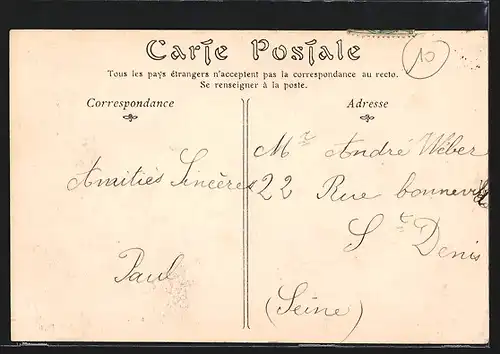 Carte Postale
10
Tous les pays étrangers n'acceptent pas la correspondance au recto.
Se renseigner à la poste.
Correspondance
Adresse
Amitiés Sincères
Paul
Mr André Wéber
22 Rue bonnevide
St Denis
(Seine)